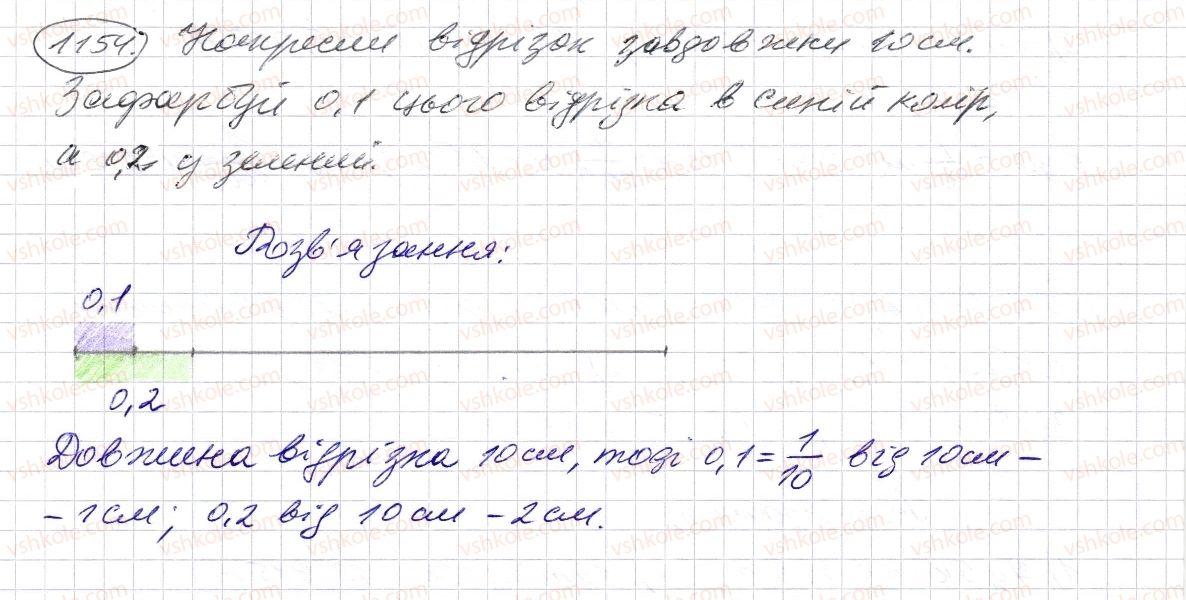 1154. Накресли відрізок завдовжки 10 см.
Зафарбуй 0,1 цього відрізка в синій колір,
а 0,2 у зелений.
Розв'язання:
0,1
0,2
Довжина відрізка 10 см, тоді 0,1 = 1/10 від 10 см –
– 1 см; 0,2 від 10 см – 2 см.
vshkole.com